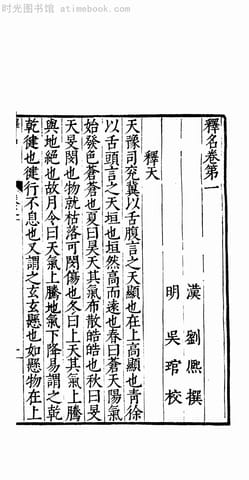 时光图书馆 - atimebook.com
釋名卷第一
漢 劉熙 撰
明 吳琯 校
釋天
天豫司兗冀以舌腹言之天顯也在上高顯也青徐
以舌頭言之天垣也垣然高而遠也春曰蒼天陽氣
始發色蒼蒼也夏曰昊天其氣布散皓皓也秋曰旻
天旻閔也物就枯落可閔傷也冬曰上天其氣上騰
與地絕也故月令曰天氣上騰地氣下降易謂之乾
乾健也健行不息也又謂之玄玄懸也如懸物在上